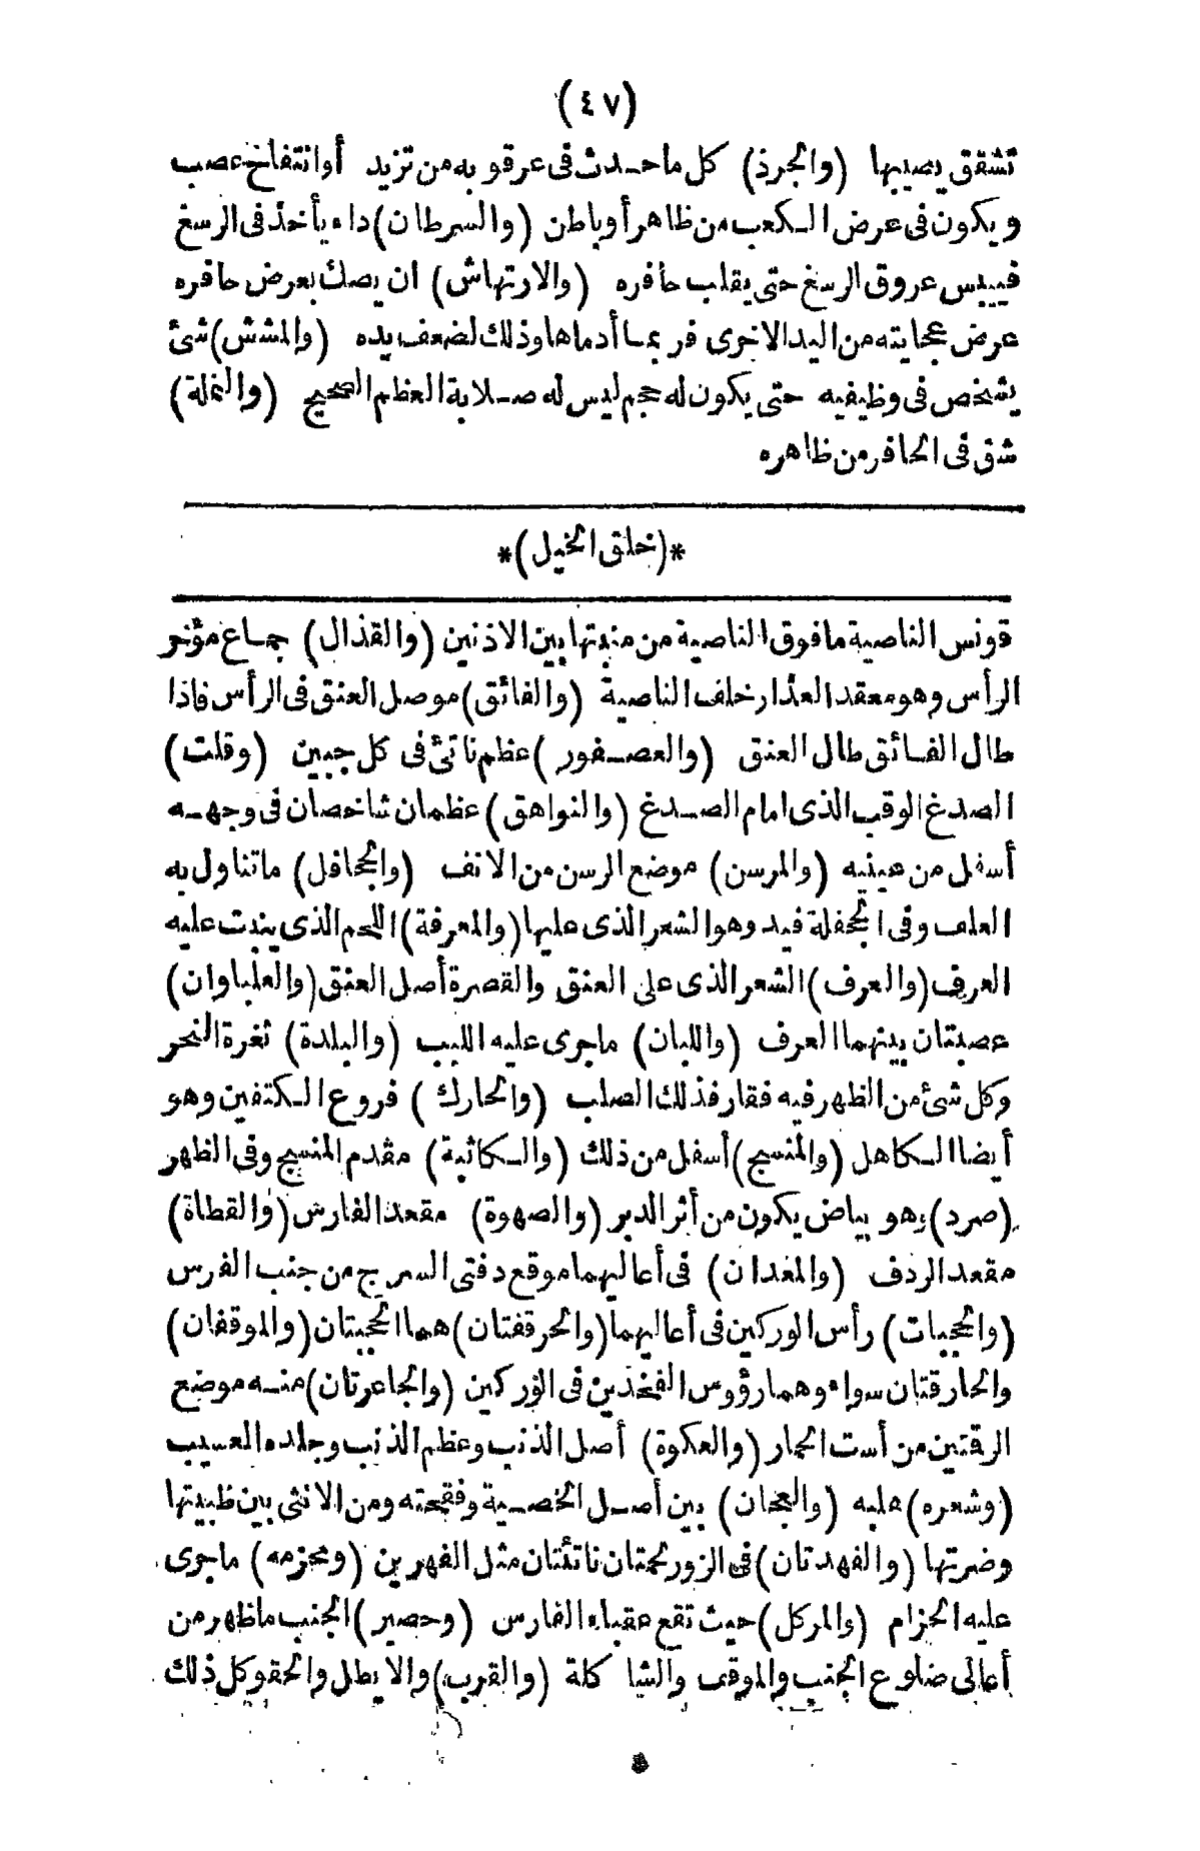 (٤٧)
تشقق يصيبها (والجرذ) كل ما حدث فى عرقوبه من تزيد أو انتفاخ عصب
ويكون فى عرض الكعب من ظاهر أو باطن (والسرطان) داء يأخذ فى الرسغ
فييبس عروق الرسغ حتى يقلب حافره (والارتهاش) ان يصك بعرض حافره
عرض عجايته من اليد الاخرى فربما أدماها وذلك لضعف يده (والمشش) شئ
يشخص فى وظيفيه حتى يكون له حجم ليس له صلابة العظم الصحيح (والنملة)
شق فى الحافر من ظاهره
*(خلق الخيل)*
قونس الناصية ما فوق الناصية من منبتها بين الاذنين (والقذال) جماع مؤخر
الرأس وهو معقد العذار خلف الناصية (والفائق) موصل العنق فى الرأس فاذا
طال الفائق طال العنق (والعصفور) عظم ناتئ فى كل جبين (وقلت)
الصدغ الوقب الذى امام الصدغ (والنواهق) عظمان شاخصان فى وجهه
أسفل من عينيه (والمرسن) موضع الرسن من الانف (والجحافل) ما تناول به
العلف وفى الجحفلة فيد وهو الشعر الذى عليها (والمعرفة) اللحم الذى ينبت عليه
العرف (والعرف) الشعر الذى على العنق والقصرة أصل العنق (والعلباوان)
عصبتان بينهما العرف (واللبان) ما جرى عليه اللبب (والبلدة) ثغرة النحر
وكل شئ من الظهر فيه فقار فذلك الصلب (والحارك) فروع الكتفين وهو
أيضا الكاهل (والمنسج) أسفل من ذلك (والكاثبة) مقدم المنسج وفى الظهر
(صرد) وهو بياض يكون من أثر الدبر (والصهوة) مقعد الفارس (والقطاة)
مقعد الردف (والمغدان) فى أعاليهما موقع دفتى السرج من جنب الفرس
(والحجبات) رأس الوركين فى أعاليهما (والحرقفتان) هما الحجبتان (والموقفان)
والحارقتان سواء وهما رؤوس الفخذين فى الوركين (والجاعرتان) منه موضع
الرقتين من أست الحمار (والعكوة) أصل الذنب وعظم الذنب وجلده العسيب
(وشعره) هلبه (والعجان) بين أصل الخصية وفقحته ومن الانثى بين ظبيتها
وضرتها (والفهدتان) فى الزور لحمتان ناتئتان مثل الفهرين (ومحزمه) ما جرى
عليه الحزام (والمركل) حيث تقع عقباء الفارس (وحصير) الجنب ما ظهر من
أعالى ضلوع الجنب والموقف والشاكلة (والقرب) والايطل والحقو كل ذلك